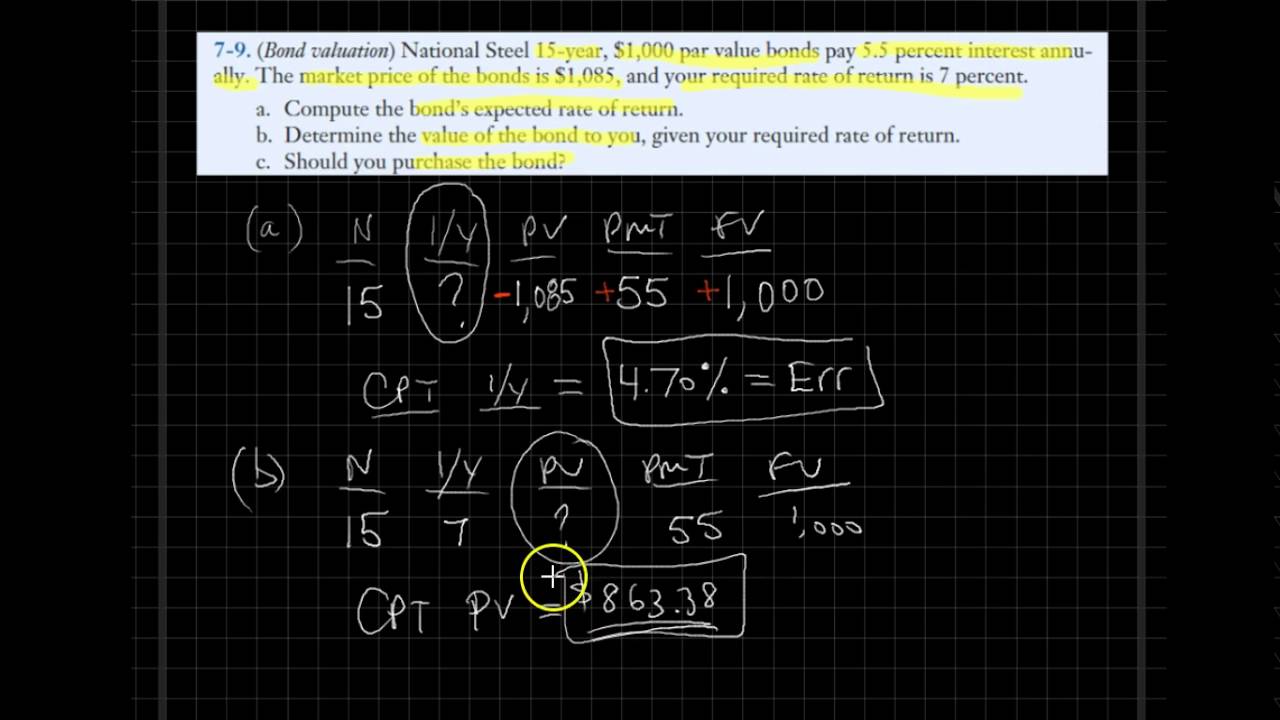 7-9. (Bond valuation) National Steel 15-year, $1,000 par value bonds pay 5.5 percent interest annu-
ally. The market price of the bonds is $1,085, and your required rate of return is 7 percent.
a. Compute the bond's expected rate of return.
b. Determine the value of the bond to you, given your required rate of return.
c. Should you purchase the bond?
(a) N I/Y PV PMT FV
15 ? -1,085 +55 +1,000
CPT I/Y = 4.70% = Err
(b) N I/Y PV PMT FV
15 7 ? 55 1,000
CPT PV = $863.38